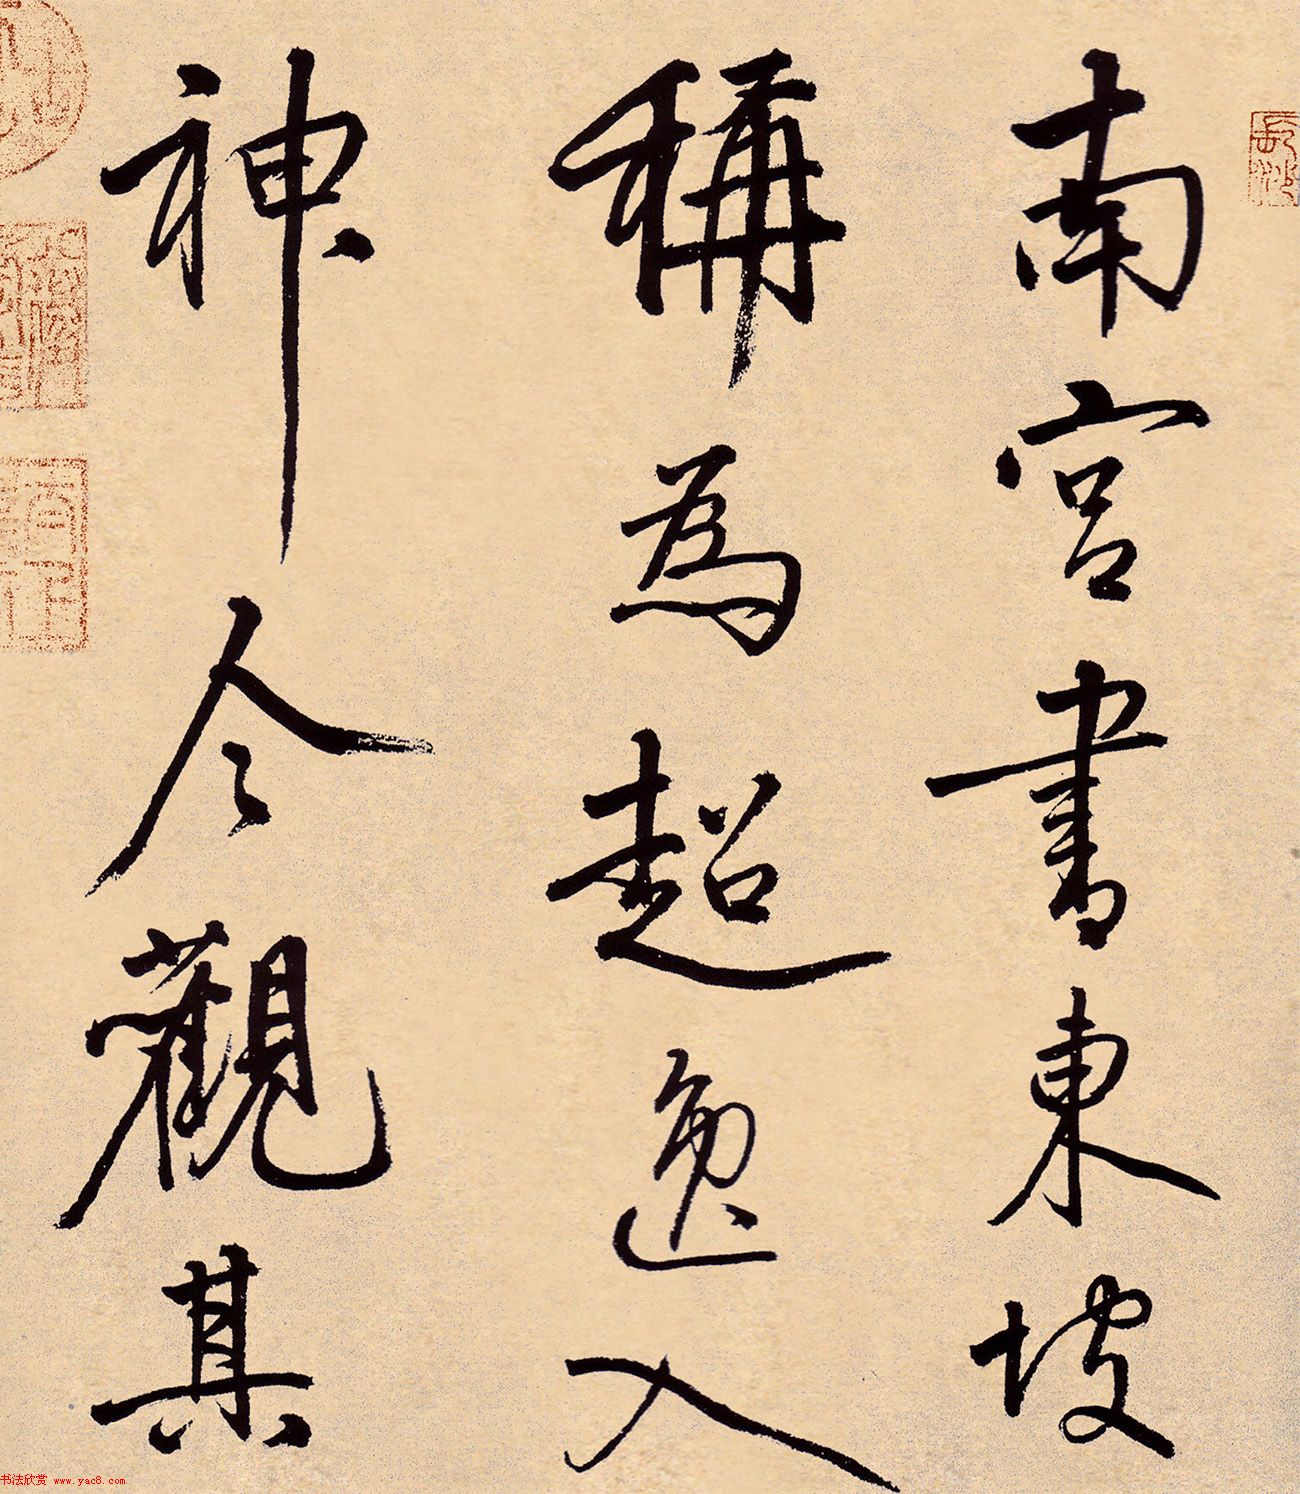 南宮書東坡
稱為超逸入
神今觀其
书法欣赏 www.yac8.com